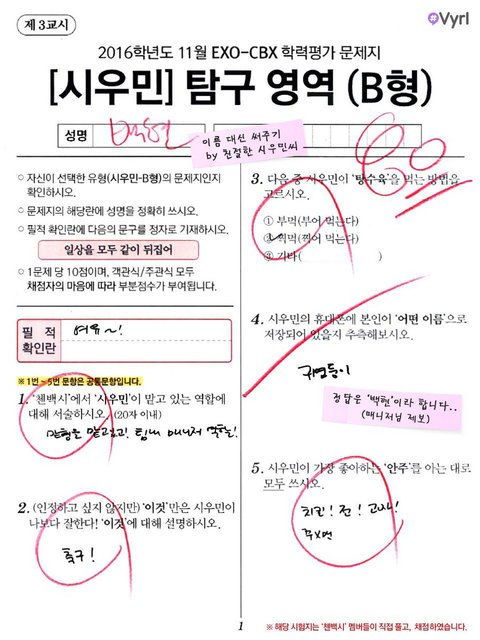 제 3교시
Vyrl
2016학년도 11월 EXO-CBX 학력평가 문제지
[시우민] 탐구 영역 (B형)
성명
백현
이름 대신 써주기
by 친절한 시우민씨
80
○ 자신이 선택한 유형(시우민-B형)의 문제지인지
확인하시오.
○ 문제지의 해당란에 성명을 정확히 쓰시오.
○ 필적 확인란에 다음의 문구를 정자로 기재하시오.
일상을 모두 같이 뒤집어
○ 1문제 당 10점이며, 객관식/주관식 모두
채점자의 마음에 따라 부분점수가 부여됩니다.
필 적
확인란
여유~!
※ 1번 ~ 5번 문항은 공통문항입니다.
1. '첸백시'에서 '시우민'이 맡고 있는 역할에
대해 서술하시오. (20자 이내)
맏형을 맡고있고! 팀내 매니저 역할을!
2. (인정하고 싶지 않지만) '이것'만은 시우민이
나보다 잘한다! '이것'에 대해 설명하시오.
축구!
3. 다음 중 시우민이 '탕수육'을 먹는 방법을
고르시오.
① 부먹(부어 먹는다)
② 찍먹(찍어 먹는다)
③ 기타( )
4. 시우민의 휴대폰에 본인이 '어떤 이름'으로
저장되어 있을지 추측해보시오.
귀염둥이
정답은 '백현'이라 합니다..
(매니저님 제보)
5. 시우민이 가장 좋아하는 '안주'를 아는 대로
모두 쓰시오.
치킨! 전! 고기!
1
※ 해당 시험지는 '첸백시' 멤버들이 직접 풀고, 채점하였습니다.